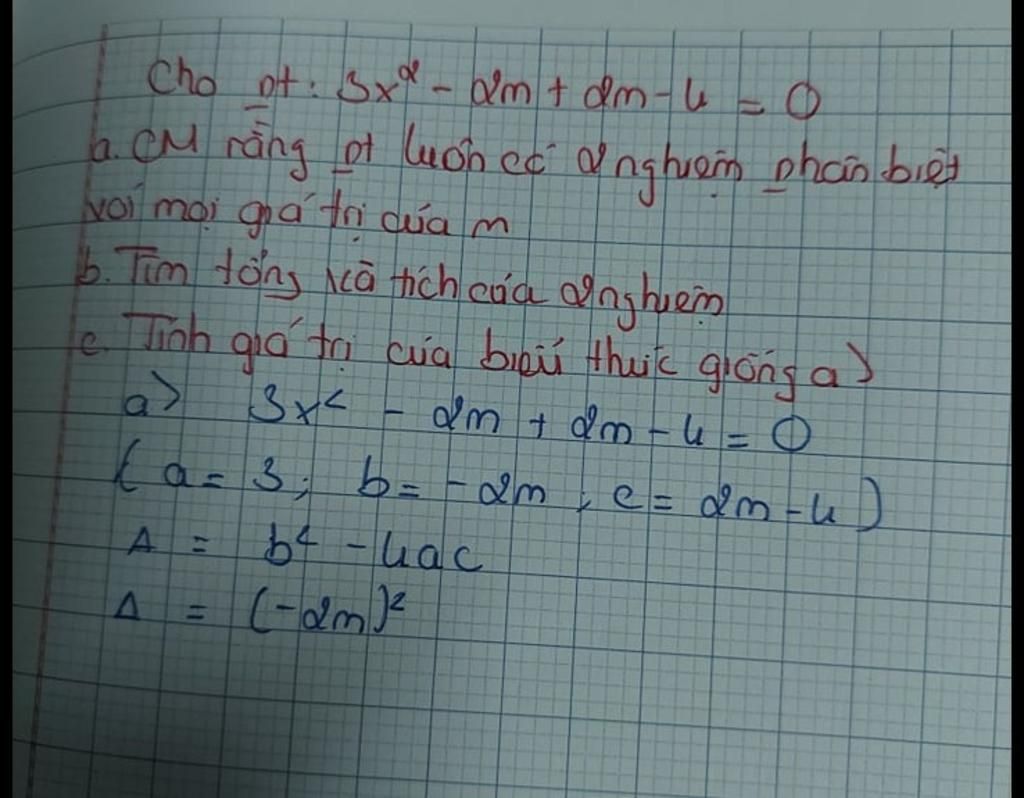 Cho pt: 3x² - 2m + 2m - 4 = 0
a. CM rằng pt luôn có 2 nghiệm phân biệt
với mọi giá trị của m
b. Tìm tổng và tích của 2 nghiệm
c. Tính giá trị của biểu thức giống a)
a) 3x² - 2m + 2m - 4 = 0
( a = 3; b = -2m ; c = 2m - 4 )
Δ = b² - 4ac
Δ = (-2m)²